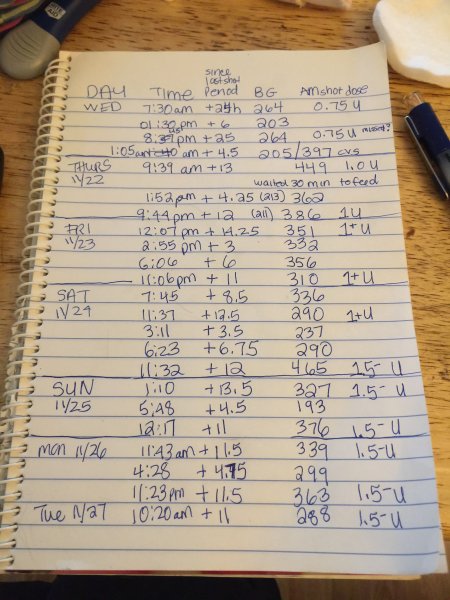 since
last shot
DAY Time Period BG Am shot dose
WED 7:30am +24h 264 0.75 U
01:30pm +6 203
8: pm +25 264 0.75 U missed?
1:05am am +4.5 205/397 cvs
THURS 9:39 am +13 449 1.0 U
11/22 waited 30 min to feed
1:52pm +4.25 (213) 362
9:44pm +12 (211) 386 1U
FRI 12:07pm +14.25 351 1+U
11/23 2:55 pm +3 332
6:06 +6 356
11:06pm +11 310 1+U
SAT 7:45 +8.5 336
11/24 11:37 +12.5 290 1+U
3:11 +3.5 237
6:23 +6.75 290
11:32 +12 465 1.5- U
SUN 1:10 +13.5 327 1.5- U
11/25 5:48 +4.5 193
12:17 +11 376 1.5-U
mon 11/26 11:43am +11.5 339 1.5-U
4:28 +4.75 299
11:23pm +11.5 363 1.5-U
Tue 11/27 10:20am +11 288 1.5-U